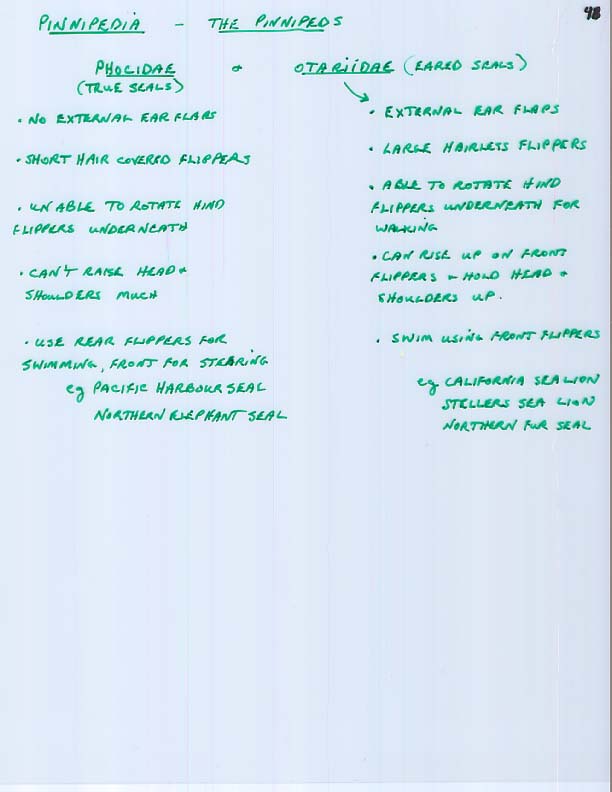 48
PINNIPEDIA - THE PINNIPEDS
PHOCIDAE & OTARIIDAE (EARED SEALS)
(TRUE SEALS)
• NO EXTERNAL EAR FLAPS
• SHORT HAIR COVERED FLIPPERS
• UNABLE TO ROTATE HIND
FLIPPERS UNDERNEATH
• CAN'T RAISE HEAD &
SHOULDERS MUCH
• USE REAR FLIPPERS FOR
SWIMMING, FRONT FOR STEERING
eg PACIFIC HARBOUR SEAL
NORTHERN ELEPHANT SEAL
• EXTERNAL EAR FLAPS
• LARGE HAIRLESS FLIPPERS
• ABLE TO ROTATE HIND
FLIPPERS UNDERNEATH FOR
WALKING
• CAN RISE UP ON FRONT
FLIPPERS & HOLD HEAD &
SHOULDERS UP.
• SWIM USING FRONT FLIPPERS
eg CALIFORNIA SEA LION
STELLERS SEA LION
NORTHERN FUR SEAL